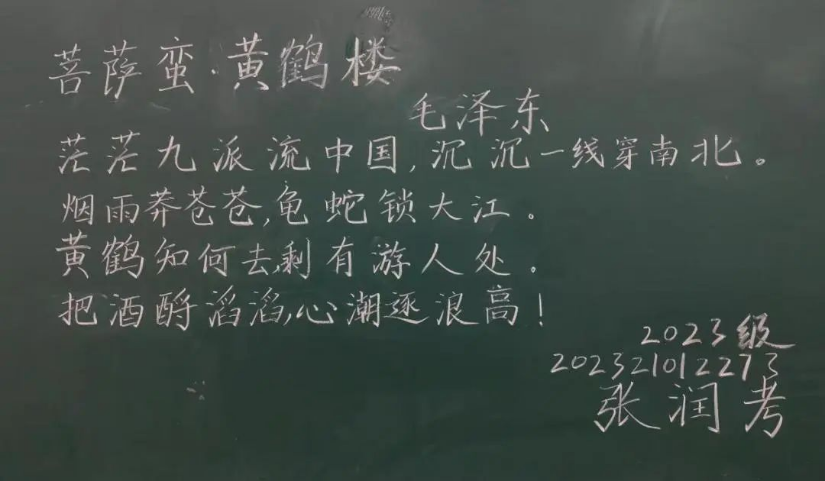 菩萨蛮·黄鹤楼
毛泽东
茫茫九派流中国,沉沉一线穿南北。
烟雨莽苍苍,龟蛇锁大江。
黄鹤知何去,剩有游人处。
把酒酹滔滔,心潮逐浪高!
2023级
202321012273
张润考